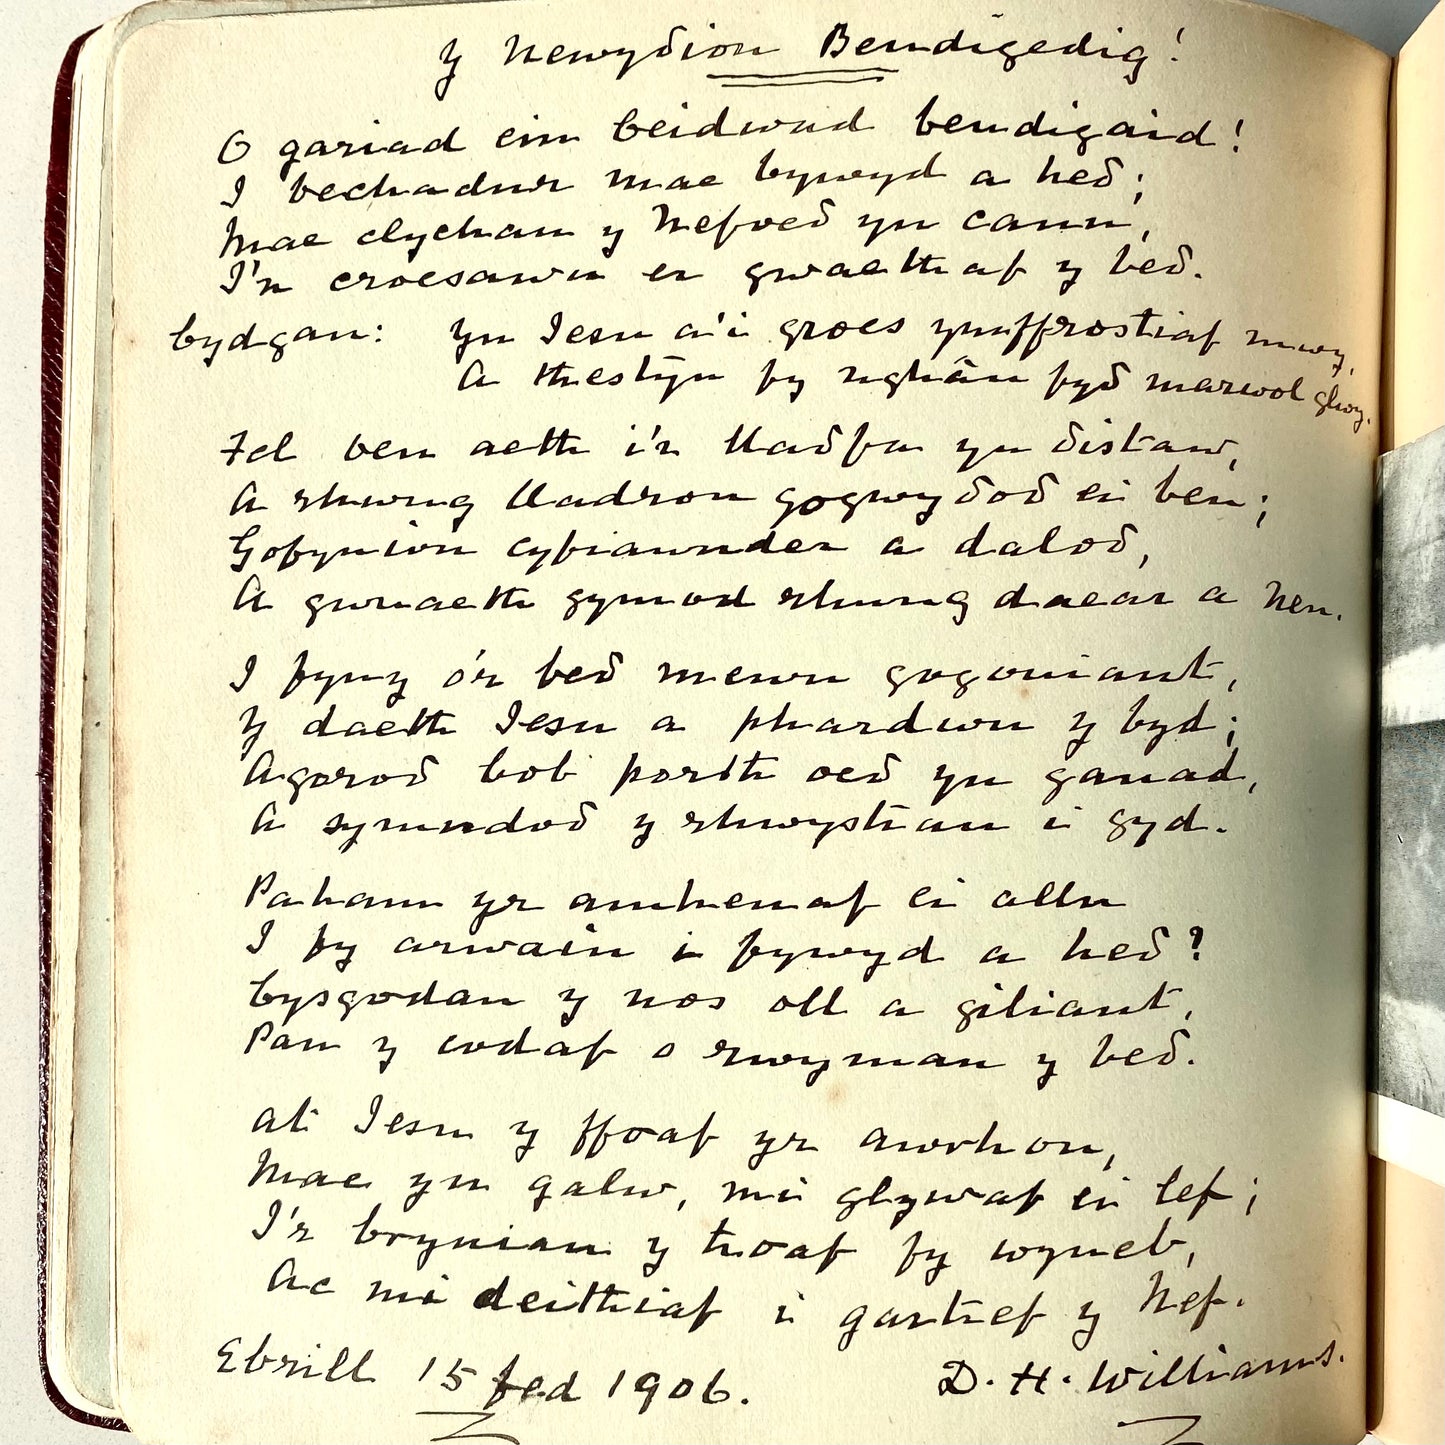 Y Newyðion Bendigedig!
O gariad ein Ceidwad bendigaid!
I bechadur mae bywyd a heð;
Mae clychau y Nefoeð yn canu,
I'n croesawu er gwaethaf y beð.
Cydgan: Yn Iesu a'i groes ymffrostiaf mwy,
A thestyn fy nghân fyð marwol glwy.
Fel oen aeth i'r llaðfa yn ðistaw,
A rhwng lladron gogwyðoð ei ben;
Gofynion cyfiawnder a daloð,
A gwnaeth gymod rhwng daear a Nen.
I fyny o'r beð mewn gogoniant,
Y daeth Iesu a phardwn y byd;
Agoroð bob porth oeð yn gauad,
A symudoð y rhwystrau i gyd.
Paham yr amheuaf ei allu
I fy arwain i fywyd a heð?
Cysgodau y nos oll a giliant,
Pan y codaf o rwymau y beð.
At Iesu y ffoaf yr awrhon,
Mae yn galw, mi glywaf ei lef;
I'r bryniau y troaf fy wyneb,
Ac mi deithiaf i gartref y Nef.
Ebrill 15fed 1906. D. H. Williams.